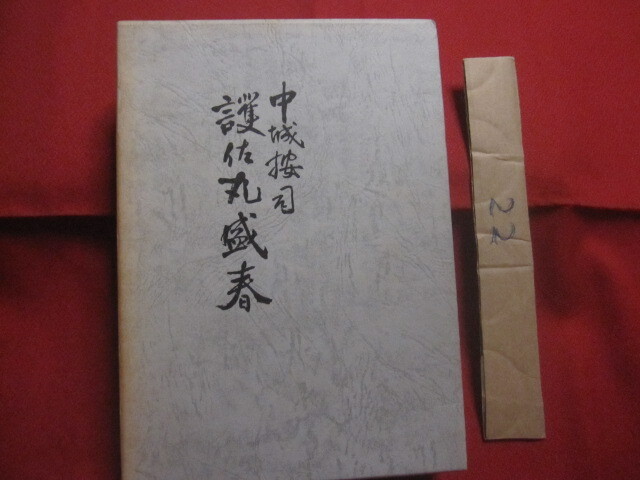 中城按司
護佐丸盛春
22